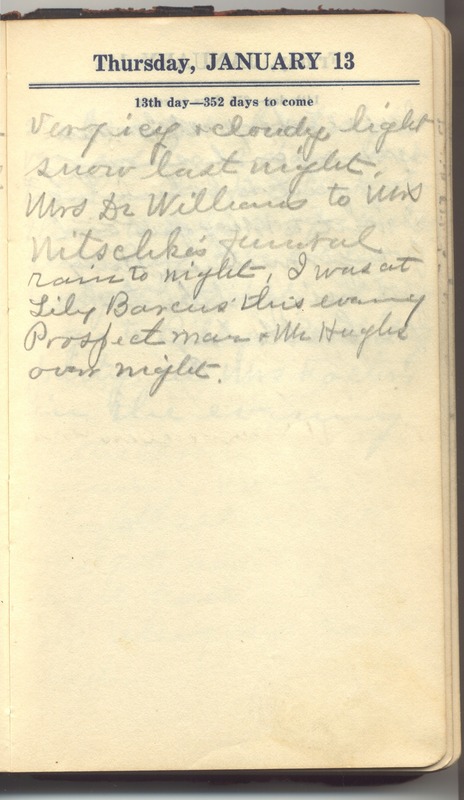 Thursday, JANUARY 13
13th day—352 days to come
Very icy + cloudy, light
snow last night.
Mrs Dr Williams to Mrs
Nitschke's funeral
rain to night, I was at
Lily Barcus this evening
Prospect man + Mr Hughs
over night.